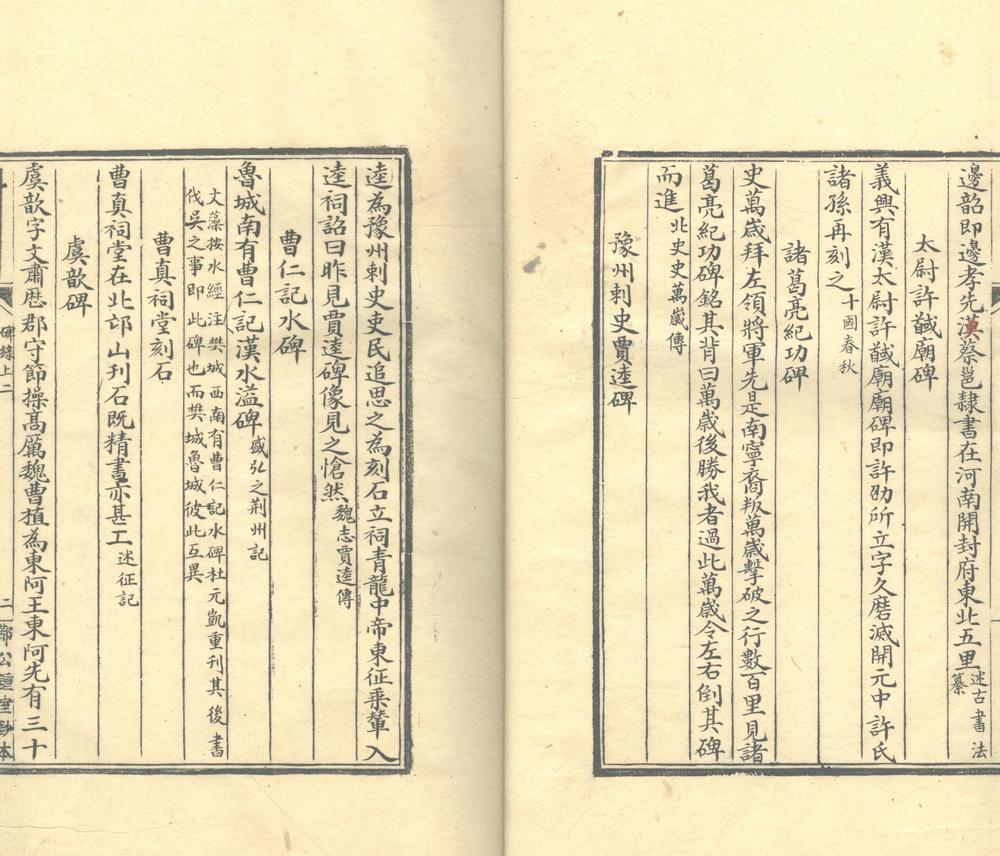 邊韶即邊孝先漢蔡邕隸書在河南開封府東北五里述古書法纂
太尉許馘廟碑
義興有漢太尉許馘廟廟碑即許劭所立字久磨滅開元中許氏
諸孫再刻之十國春秋
諸葛亮紀功碑
史萬歲拜左領將軍先是南寧裔叛萬歲擊破之行數百里見諸
葛亮紀功碑銘其背曰萬歲後勝我者過此萬歲令左右倒其碑
而進北史史萬歲傳
豫州刺史賈逵碑
逵為豫州刺史吏民追思之為刻石立祠青龍中帝東征乗輦入
逵祠詔曰昨見賈逵碑像見之愴然魏志賈逵傳
曹仁記水碑
魯城南有曹仁記漢水溢碑盛弘之荆州記
文藻按水經注樊城西南有曹仁記水碑杜元凱重刋其後書
伐吳之事即此碑也而樊城魯城彼此互異
曹真祠堂刻石
曹真祠堂在北邙山刋石既精書亦甚工述征記
虞歆碑
虞歆字文肅歷郡守節操高厲魏曹植為東阿王東阿先有三十
碑錄上二
二